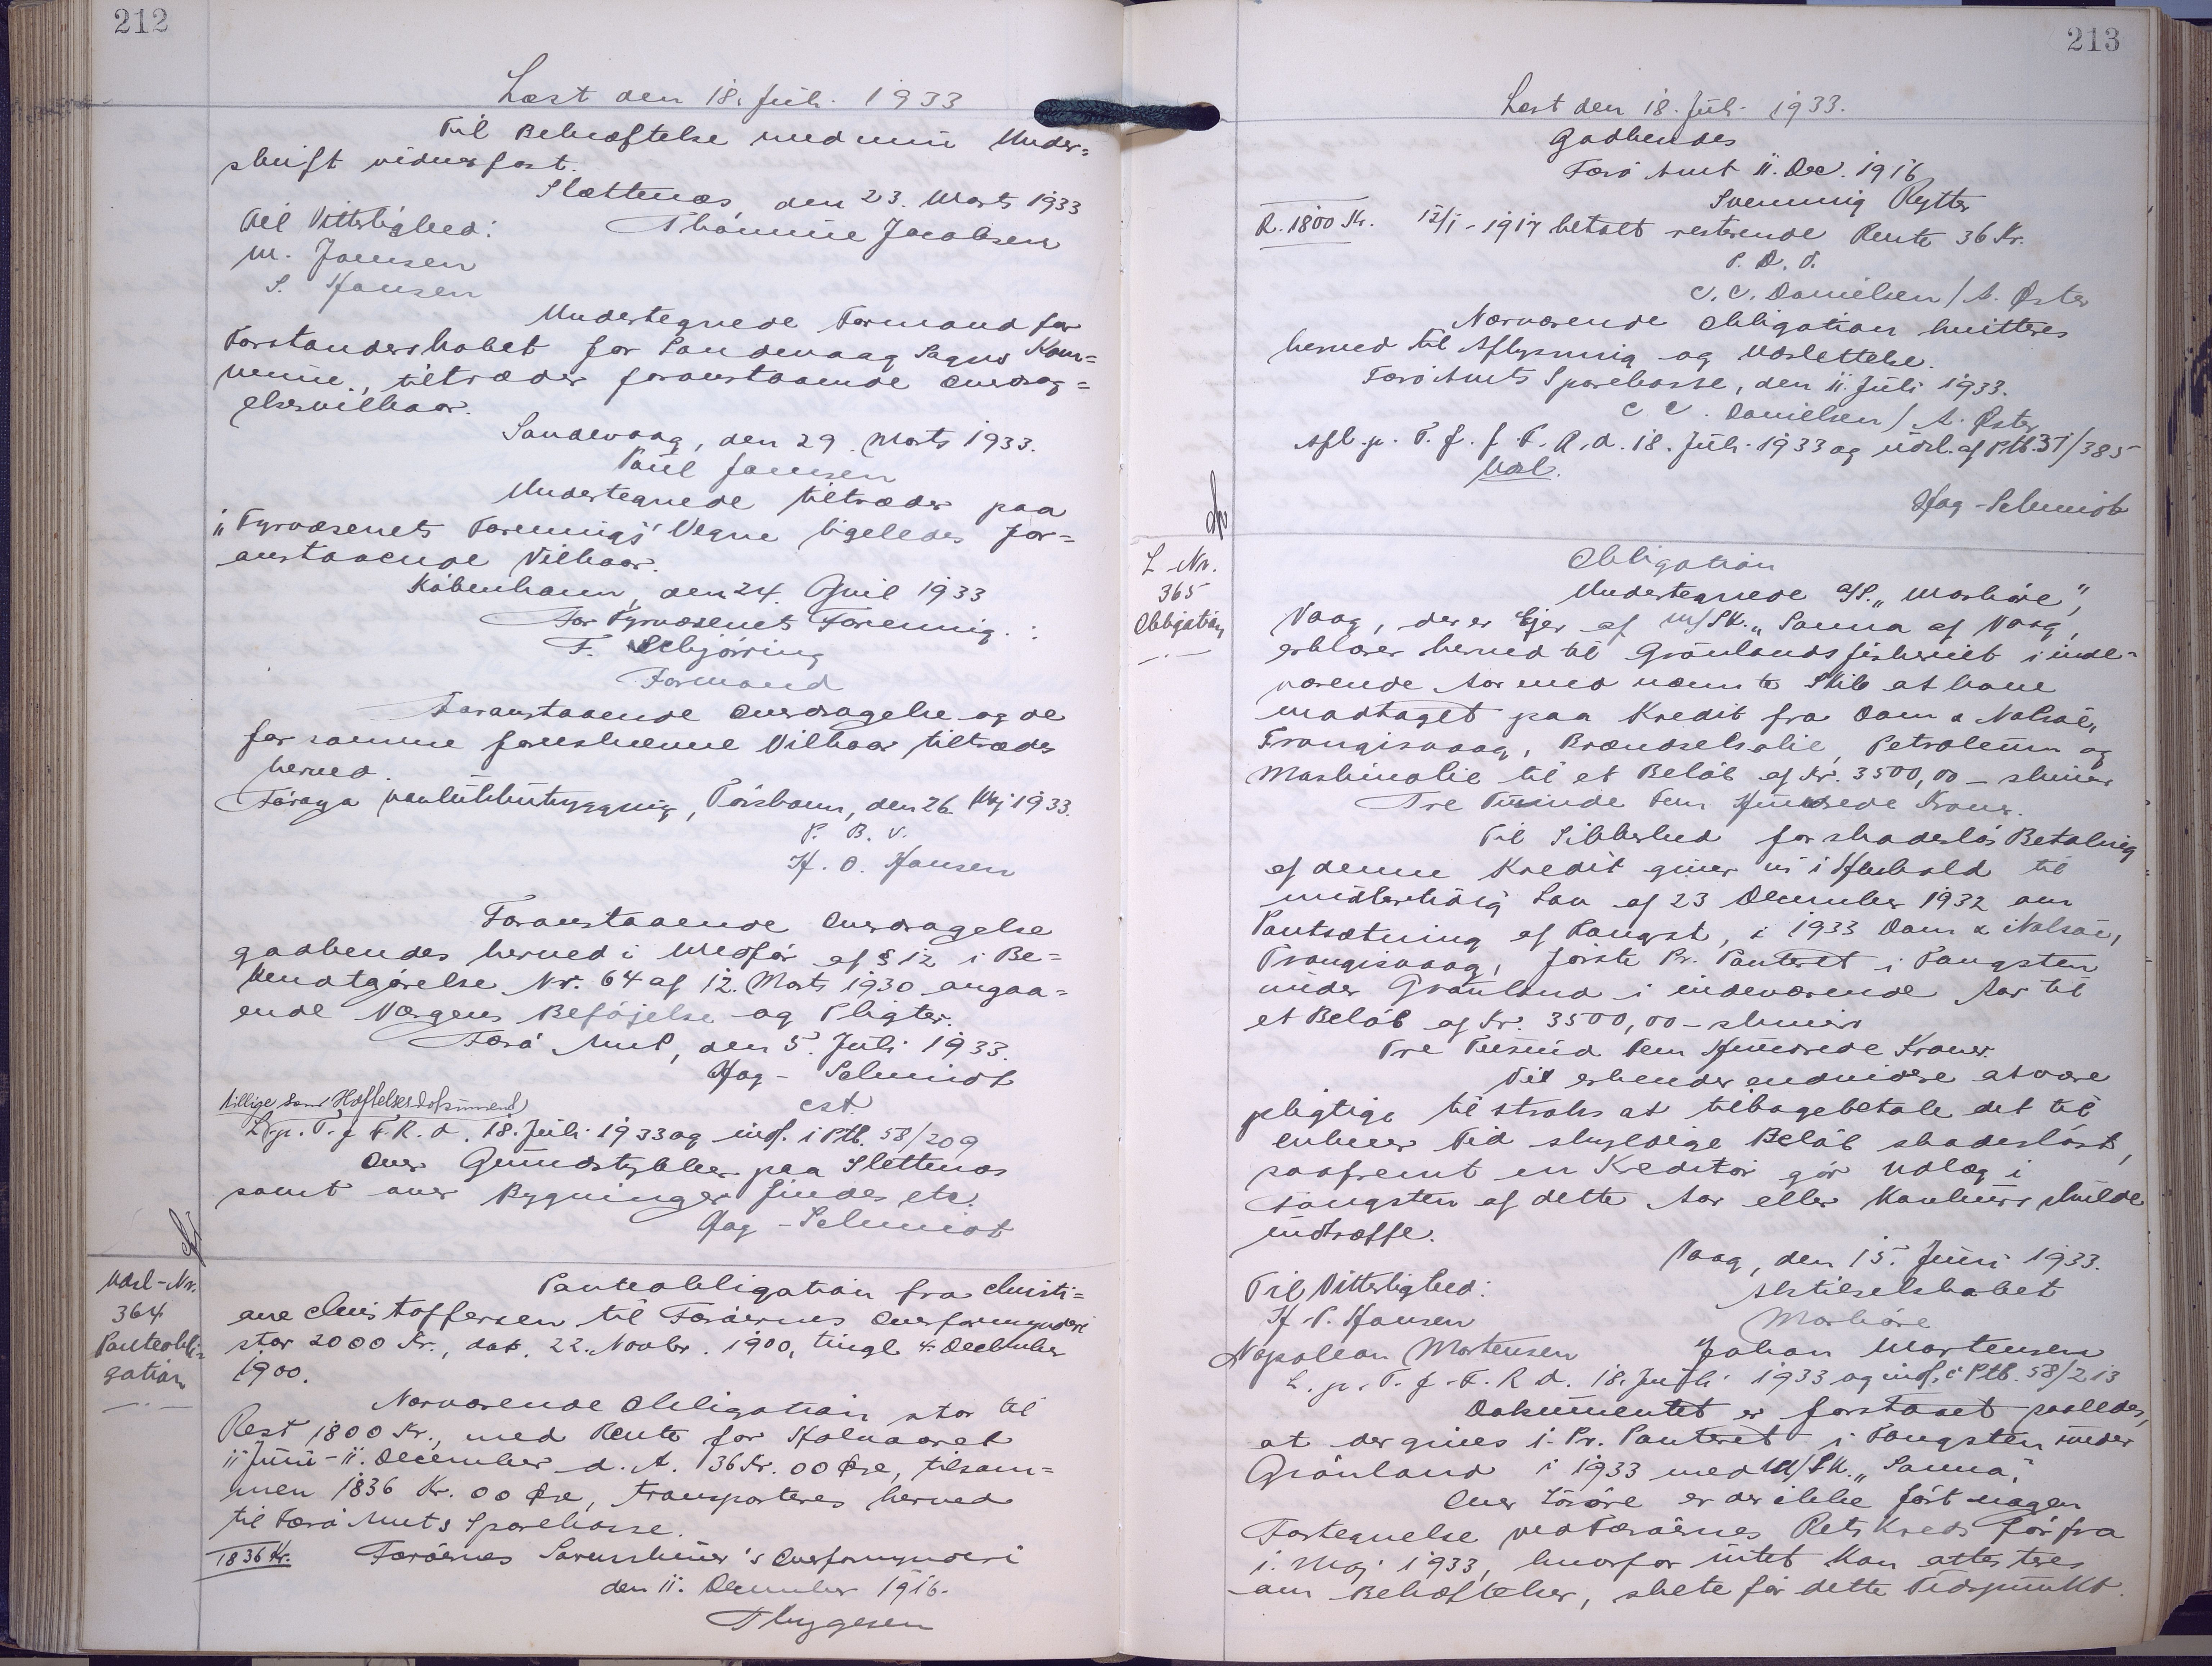 212
Læst den 18. Juli 1933
Til Bekræftelse med min Under=
skrift vidnesfast.
Slættenæs, den 23. Marts 1933
Til Vitterlighed: Thomine Jacobsen
M. Joensen
S. Hansen
Undertegnede Formand for
Forstanderskabet for Sandevaag Sogns Kom=
mune, tiltræder foranstaaende Overdrag=
elsesvilkaar.
Sandevaag, den 29. Marts 1933.
Poul Joensen
Undertegnede tiltræder paa
"Fyrvæsenets Forening's" Vegne ligeledes for=
anstaaende Vilkaar.
København, den 24. April 1933
For Fyrvæsenets Forening.:
F. Schjörring
Formand
Foranstaaende Overdragelse og de
for samme foreskrevne Vilkaar tiltrædes
herved.
Föroya vanlukkutrygging, Tórshavn, den 26. Maj 1933.
P. B. V.
H. O. Hansen
Foranstaaende Overdragelse
godkendes herved i Medfør af § 12 i Be=
kendtgørelse Nr. 64 af 12. Marts 1930 angaa=
ende Værgens Beføjelse og Pligter.
Færø Amt, den 5. Juli 1933.
Hag - Schmidt
cst
tillige som Hæftelsesdokument)
L. p. T. f. F. R. d. 18. Juli 1933 og indf. i Ptb. 58/209
Over Grundstykker paa Slettenæs
samt over Bygninger findes etc.
Hag - Schmidt
Udsl-Nr.
364
Panteobli-
gation
Panteobligation fra Christi=
ane Christoffersen til Færøernes Overformynderi
stor 2000 Kr., dat. 22. Novbr. 1900, tingl. 4. December
1900.
Nærværende Obligation stor til
Rest 1800 Kr., med Rente for Halvaaret
11 Juni - 11. December d. A. 36 Kr. 00 Øre, tilsam=
men 1836 Kr. 00 Øre, transporteres herved
til Færø Amts Sparekasse.
1836 Kr. Færøernes Sorenskriver's Overformynderi
den 11. December 1916.
Thygesen
213
Læst den 18. Juli 1933.
Godkendes
Færø Amt 11. Dec. 1916
Svenning Rytter
R. 1800 Kr. 12/1 - 1917 betalt resterende Rente 36 Kr.
P. D. V.
C. C. Danielsen / A. Øster
Nærværende Obligation kvitteres
herved til Aflysning og Udslettelse.
Færø Amts Sparekasse, den 11. Juli 1933.
C. C. Danielsen / A. Øster
Afl. p. T. f. F. R. d. 18. Juli 1933 og udsl. af Ptb. 31/385
Udsl.
Hag - Schmidt
L. Nr.
365
Obligation
Obligation
Undertegnede A/S. "Marhöve",
Vaag, der er Ejer af M/Sk. "Sanna af Vaag",
erklærer herved til Grönlandsfiskeriet i inde-
værende Aar med nævnte Skib at have
modtaget paa Kredit fra Dam & Nolsøe,
Trangisvaag, Brændselsolie, Petroleum og
Maskinolie til et Beløb af Kr. 3500,00 - skriver
Tre Tusinde Fem Hundrede Kroner.
Til Sikkerhed for skadesløs Betaling
af denne Kredit giver vi i Henhold til
midlertidig Lov af 23 December 1932 om
Pantsætning af Fangst, i 1933 Dam & Nolsøe,
Trangisvaag, første Pr. Panteret i Fangsten
under Grønland i indeværende Aar til
et Beløb af Kr. 3500,00 - skriver
Tre Tusind Fem Hundrede Kroner.
Vi erkender endvidere at være
pligtige til straks at tilbagebetale det til
enhver Tid skyldige Beløb skadesløst,
saafremt en Kreditor gör Udlæg i
Fangsten af dette Aar eller Konkurs skulde
indtræffe.
Vaag, den 15. Juni 1933.
Til Vitterlighed: Aktieselskabet
H. P. Hansen Marhöve
Napoleon Mortensen Johan Mortensen
L. p. T. f. F. R. d. 18. Juli 1933 og indf. i Ptb. 58/213
Dokumentet er forstaaet saaledes,
at der gives 1. Pr. Panteret i Fangsten under
Grönland i 1933 med M/Sk. "Sanna."
Over Løsøre er der ikke ført nogen
Fortegnelse ved Færøernes Retskreds før fra
1. Maj 1933, hvorfor intet kan attesteres
om Behæftelser, skete før dette Tidspunkt.